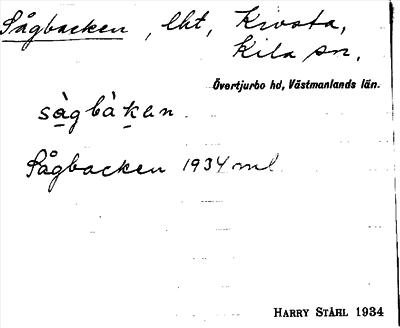 Sågbacken, lht, Krosta,
Kila sn.
Övertjurbo hd, Västmanlands län.
sàgbàkan
Sågbacken 1934 ml
HARRY STÅHL 1934